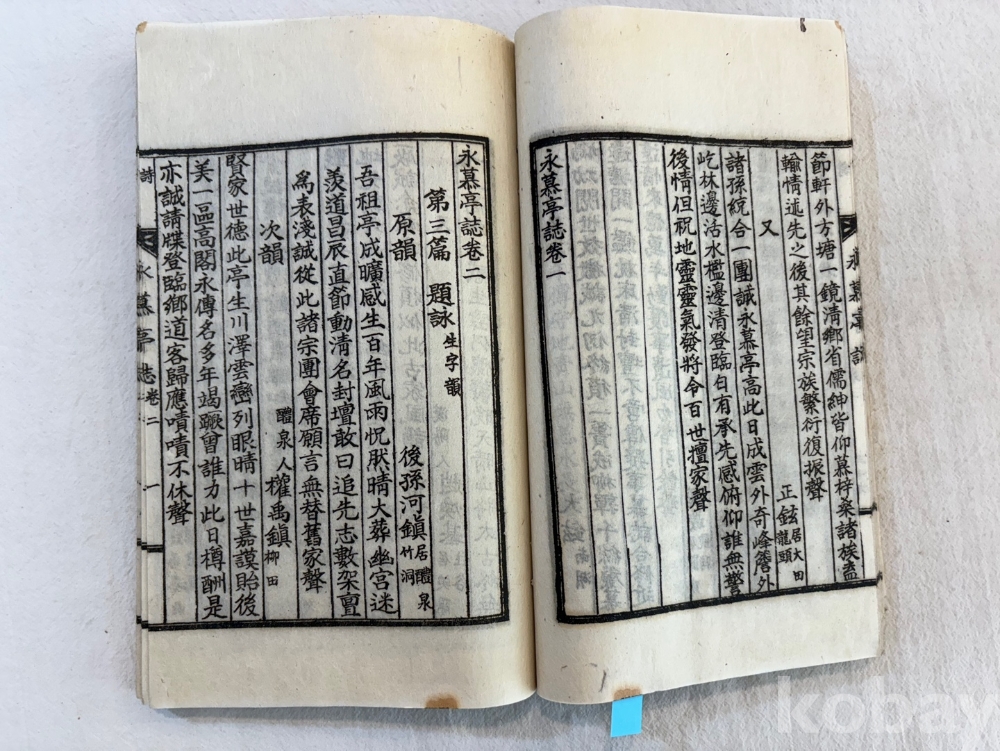 節軒外方塘一鏡清鄉省儒紳皆仰慕梓桑諸族盍
輸情述先之後其餘望宗族繁衍復振聲
又 正鉉 居大田龍頭
諸孫統合一團誠永慕亭高此日成雲外奇峰簷外
屹林邊活水檻邊清登臨自有承先感俯仰誰無警
後情但祝地靈靈氣發將令百世擅家聲
永慕亭誌卷一
永慕亭誌
永慕亭誌卷二
第三篇 題詠 生字韻
原韻 後孫河鎭 居醴泉竹洞
吾祖亭成曠感生百年風雨怳肰晴大葬幽宮迷
羨道昌辰直節動淸名封壇敢曰追先志數架亶
爲表淺誠從此諸宗團會席願言無替舊家聲
次韻 醴泉人 權禹鎭 柳田
賢家世德此亭生川澤雲巒列眼晴十世嘉謨貽後
美一區高閣永傳名多年竭蹶曾誰力此日樽酬是
亦誠請牒登臨鄉道客歸應嘖嘖不休聲
詩 永慕亭誌 卷二 一
kobay